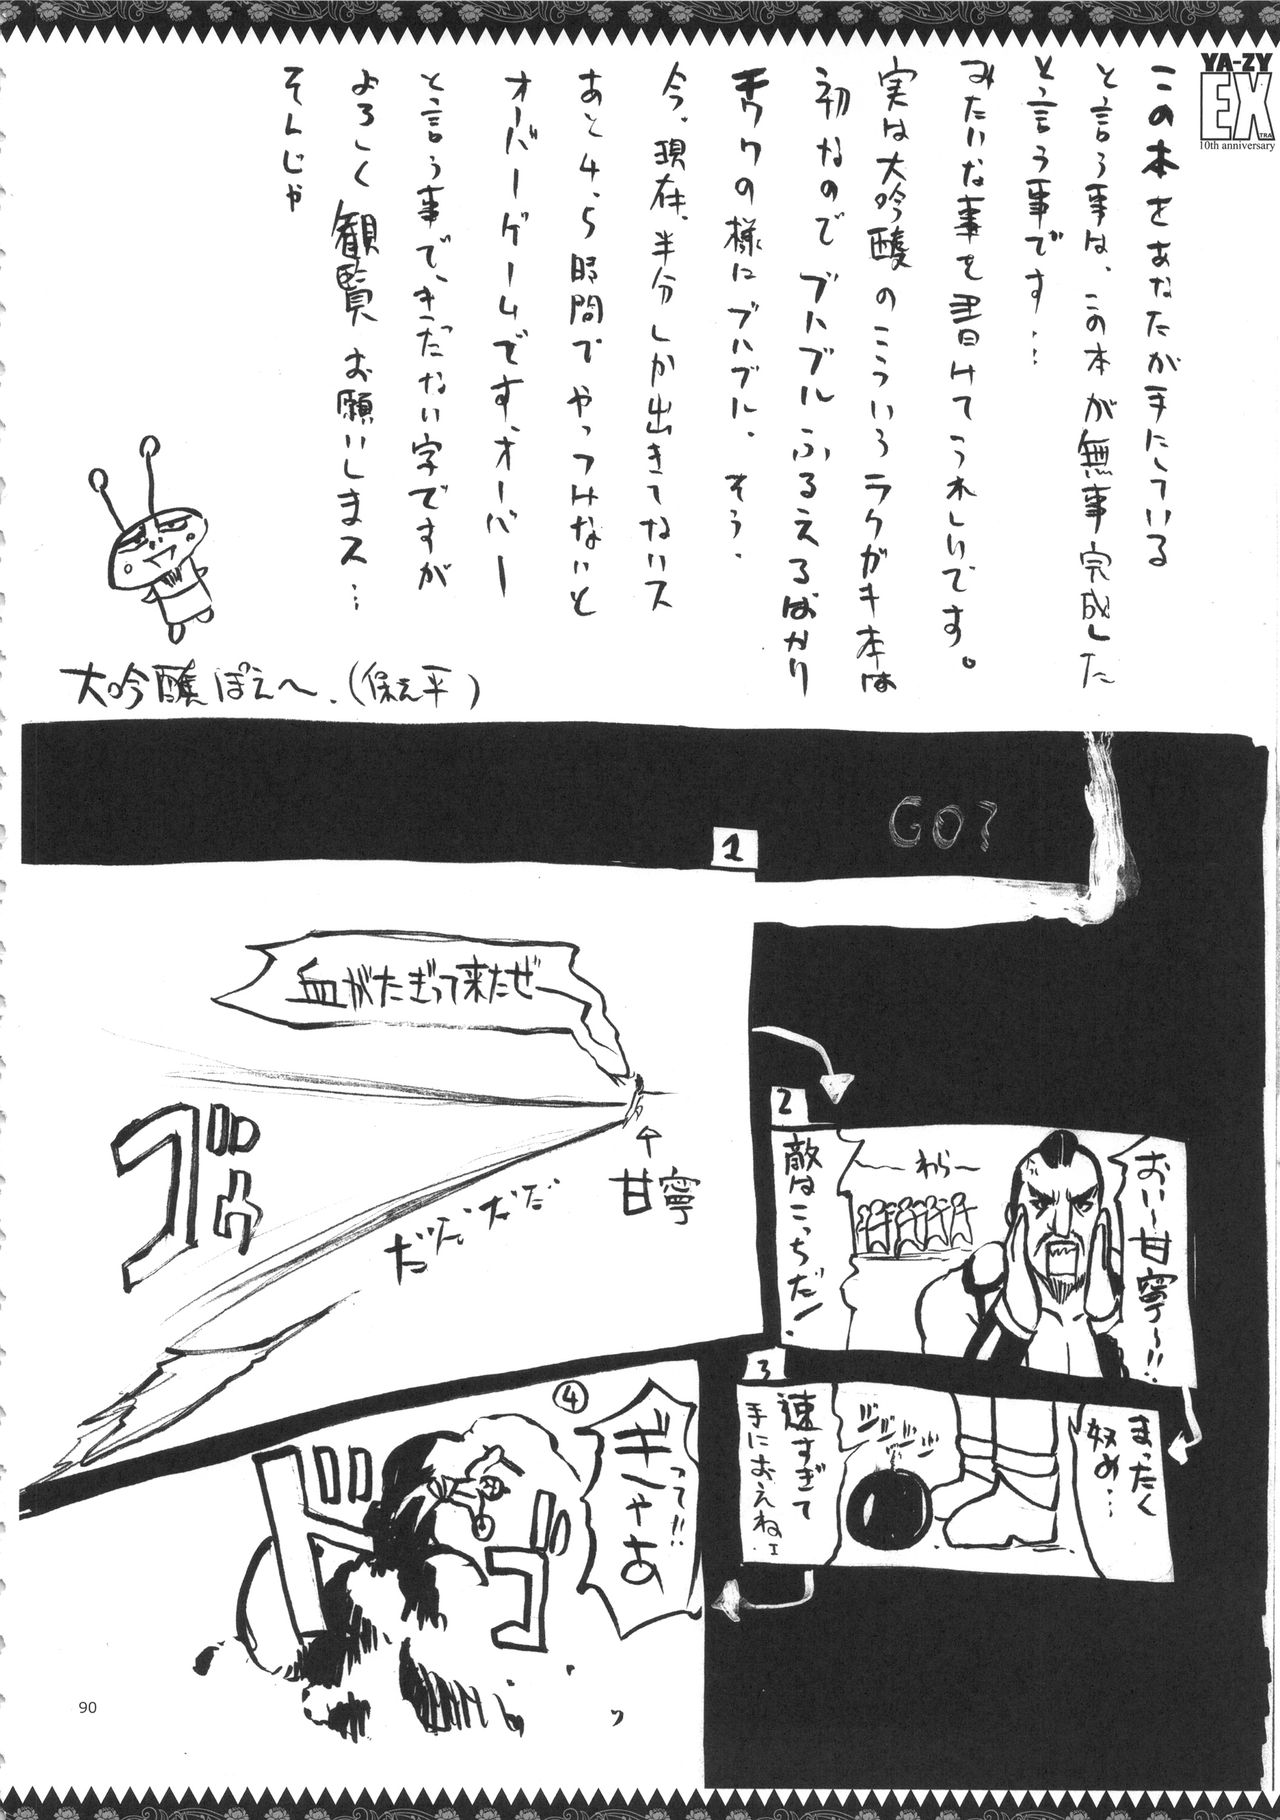 YA-ZY
EX
TRA
10th anniversary
この本をあなたが手にしている
と言う事は、この本が無事完成した
と言う事です…
みたいな事を書けてうれしいです。
実は大吟醸のこういうラクガキ本は
初なのでブルブルふるえるばかり
チワワの様にブルブル、そう、
今、現在、半分しか出きてないス
あと4、5時間でやっつけないと
オーバーゲームです、オーバー
と言う事で、きったない字ですが
よろしく観賢お願いしまス…
そんじゃ
大吟醸ぽえ〜、(保え平)
GO?
1
血がたぎって来たぜ
ゴゥ
甘寧
だだだだ
2
おい〜甘寧〜!!
わら〜
敵はこっちだ!
3
まったく
奴め…
ジジジ
速すぎて
手におえねェ
4
って!!
ぎゃあ
ドゴ
90